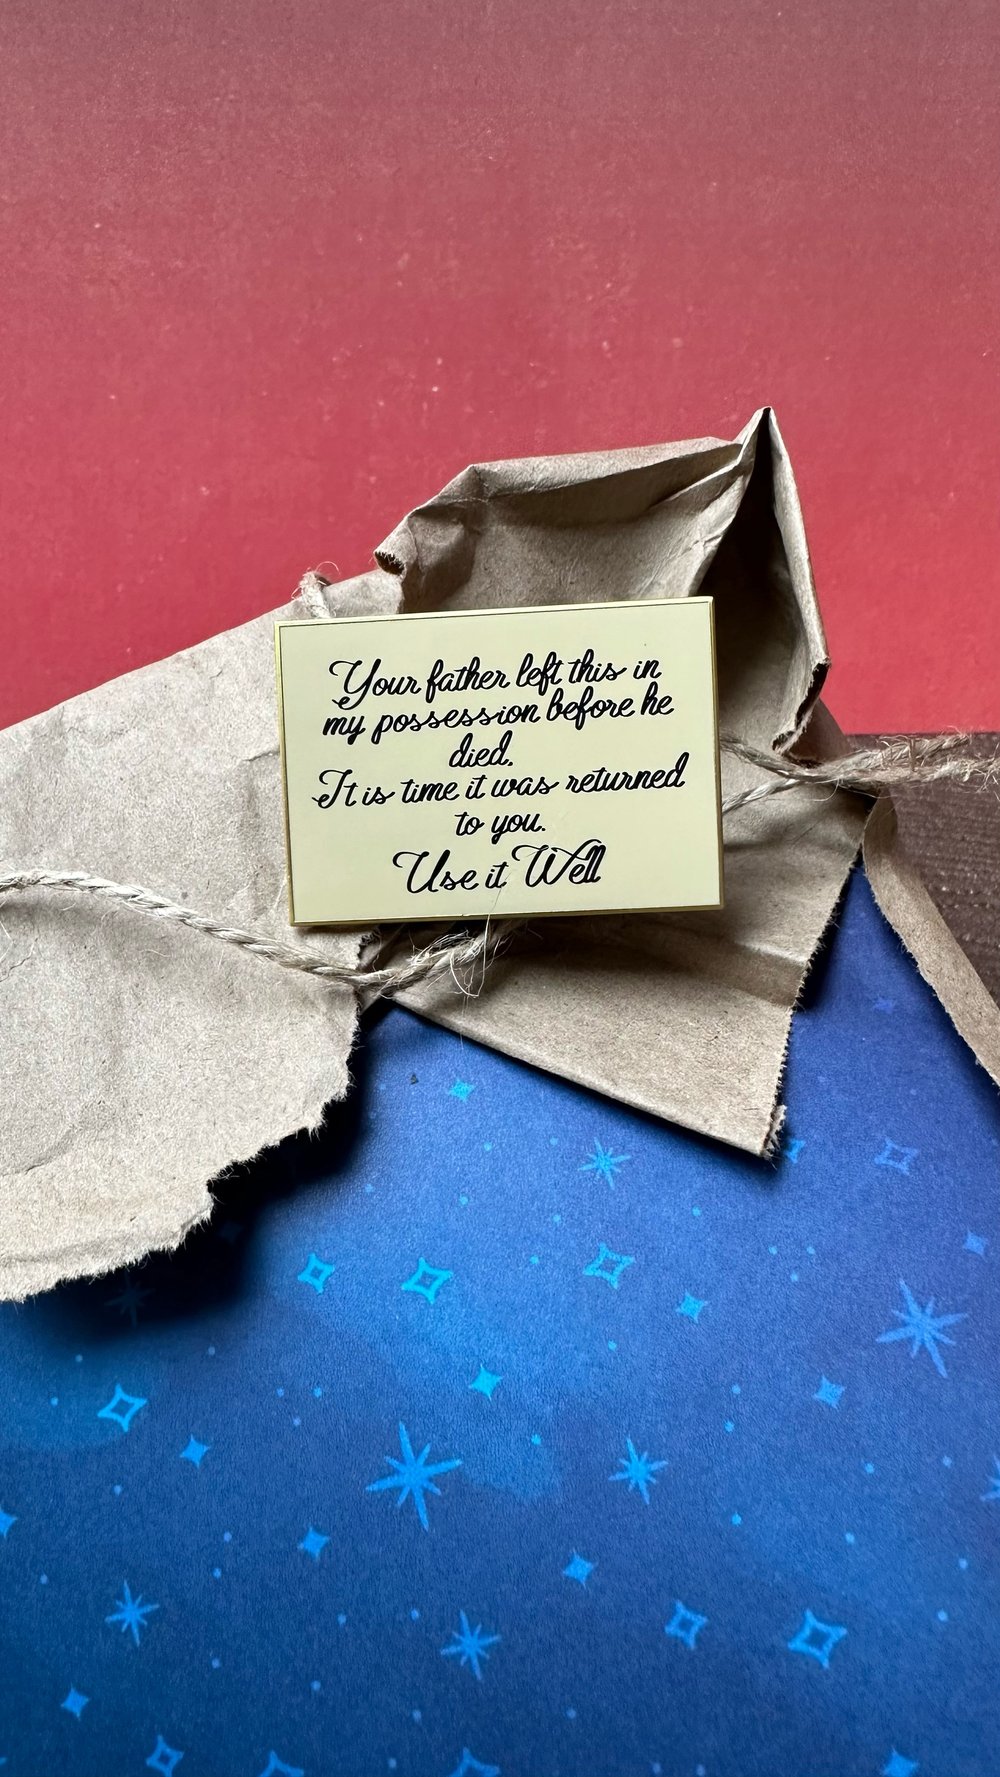 Your father left this in
my possession before he
died.
It is time it was returned
to you.
Use it Well